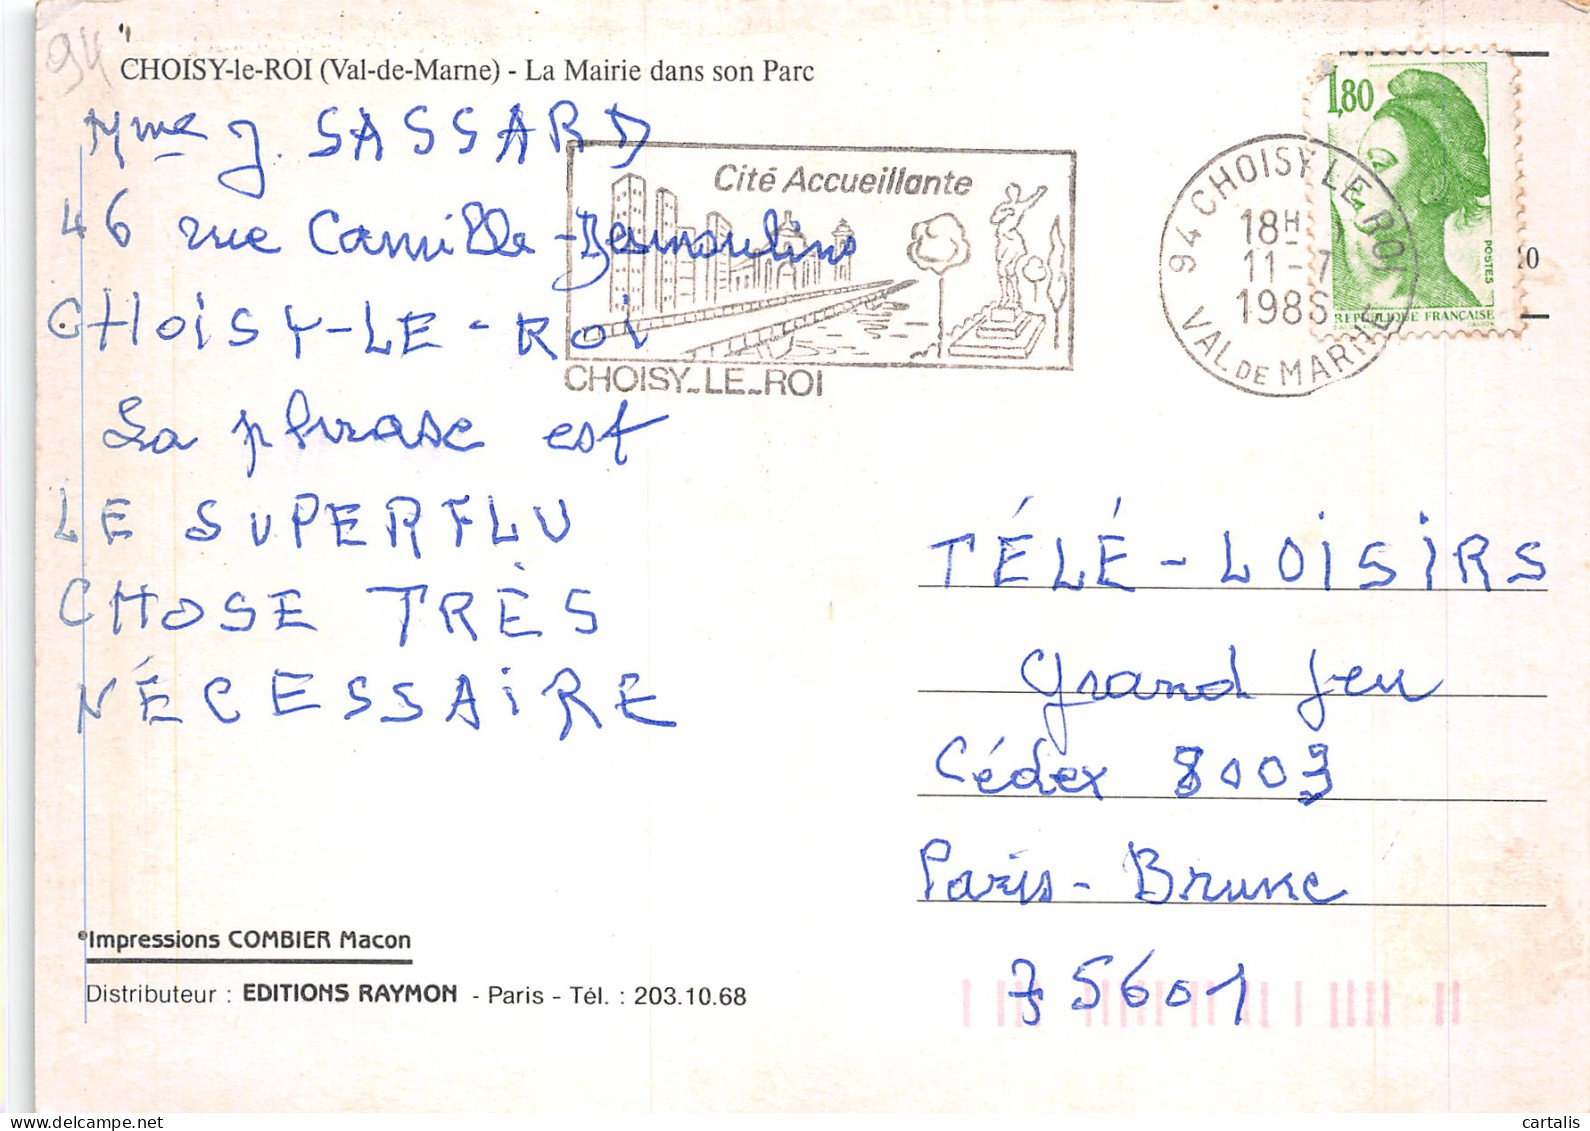 94
CHOISY-le-ROI (Val-de-Marne) - La Mairie dans son Parc
Mme J. SASSARD
46 rue Camille-Desmoulins
CHOISY-LE-ROI
La phrase est
LE SUPERFLU
CHOSE TRÈS
NÉCESSAIRE
Cité Accueillante
CHOISY-LE-ROI
94 CHOISY LE ROI
18H
11-7
1986
VAL DE MARNE
1,80
POSTES
REPUBLIQUE FRANÇAISE
20
TÉLÉ-LOISIRS
Grand Jeu
Cédex 8003
Paris-Brune
75601
Impressions COMBIER Macon
Distributeur : EDITIONS RAYMON - Paris - Tél. : 203.10.68
cartalis
www.delcampe.net